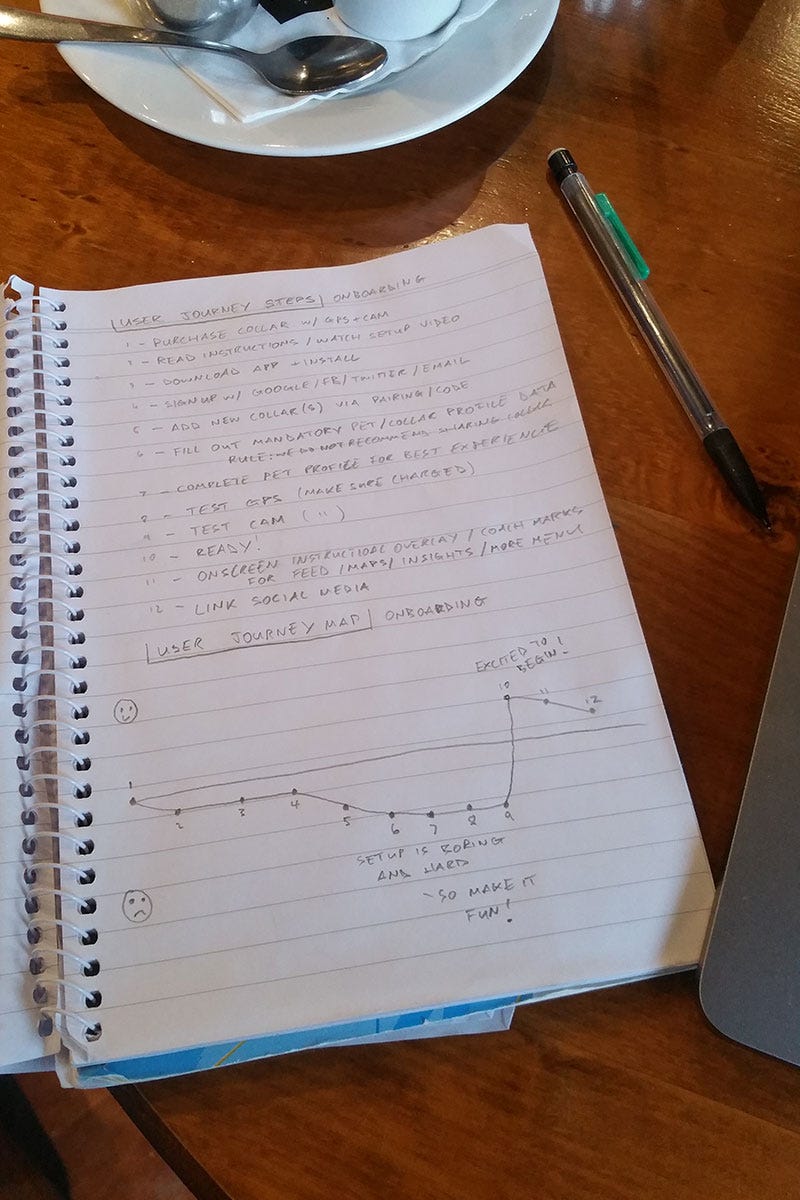 USER JOURNEY STEPS | ONBOARDING
1 - PURCHASE COLLAR W/ GPS+CAM
2 - READ INSTRUCTIONS / WATCH SETUP VIDEO
3 - DOWNLOAD APP + INSTALL
4 - SIGNUP W/ GOOGLE/FB/TWITTER/EMAIL
5 - ADD NEW COLLAR(S) VIA PAIRING/CODE
6 - FILL OUT MANDATORY PET/COLLAR PROFILE DATA
RULE: WE DO NOT RECOMMEND SHARING COLLAR
7 - COMPLETE PET PROFILE FOR BEST EXPERIENCE
8 - TEST GPS (MAKE SURE CHARGED)
9 - TEST CAM ( " )
10 - READY!
11 - ONSCREEN INSTRUCTIONAL OVERLAY / COACH MARKS
FOR FEED / MAPS / INSIGHTS / MORE MENU
12 - LINK SOCIAL MEDIA
USER JOURNEY MAP | ONBOARDING
EXCITED TO
BEGIN!
10 11 12
1
2 3 4 5 6 7 8 9
SETUP IS BORING
AND HARD
- SO MAKE IT
FUN!